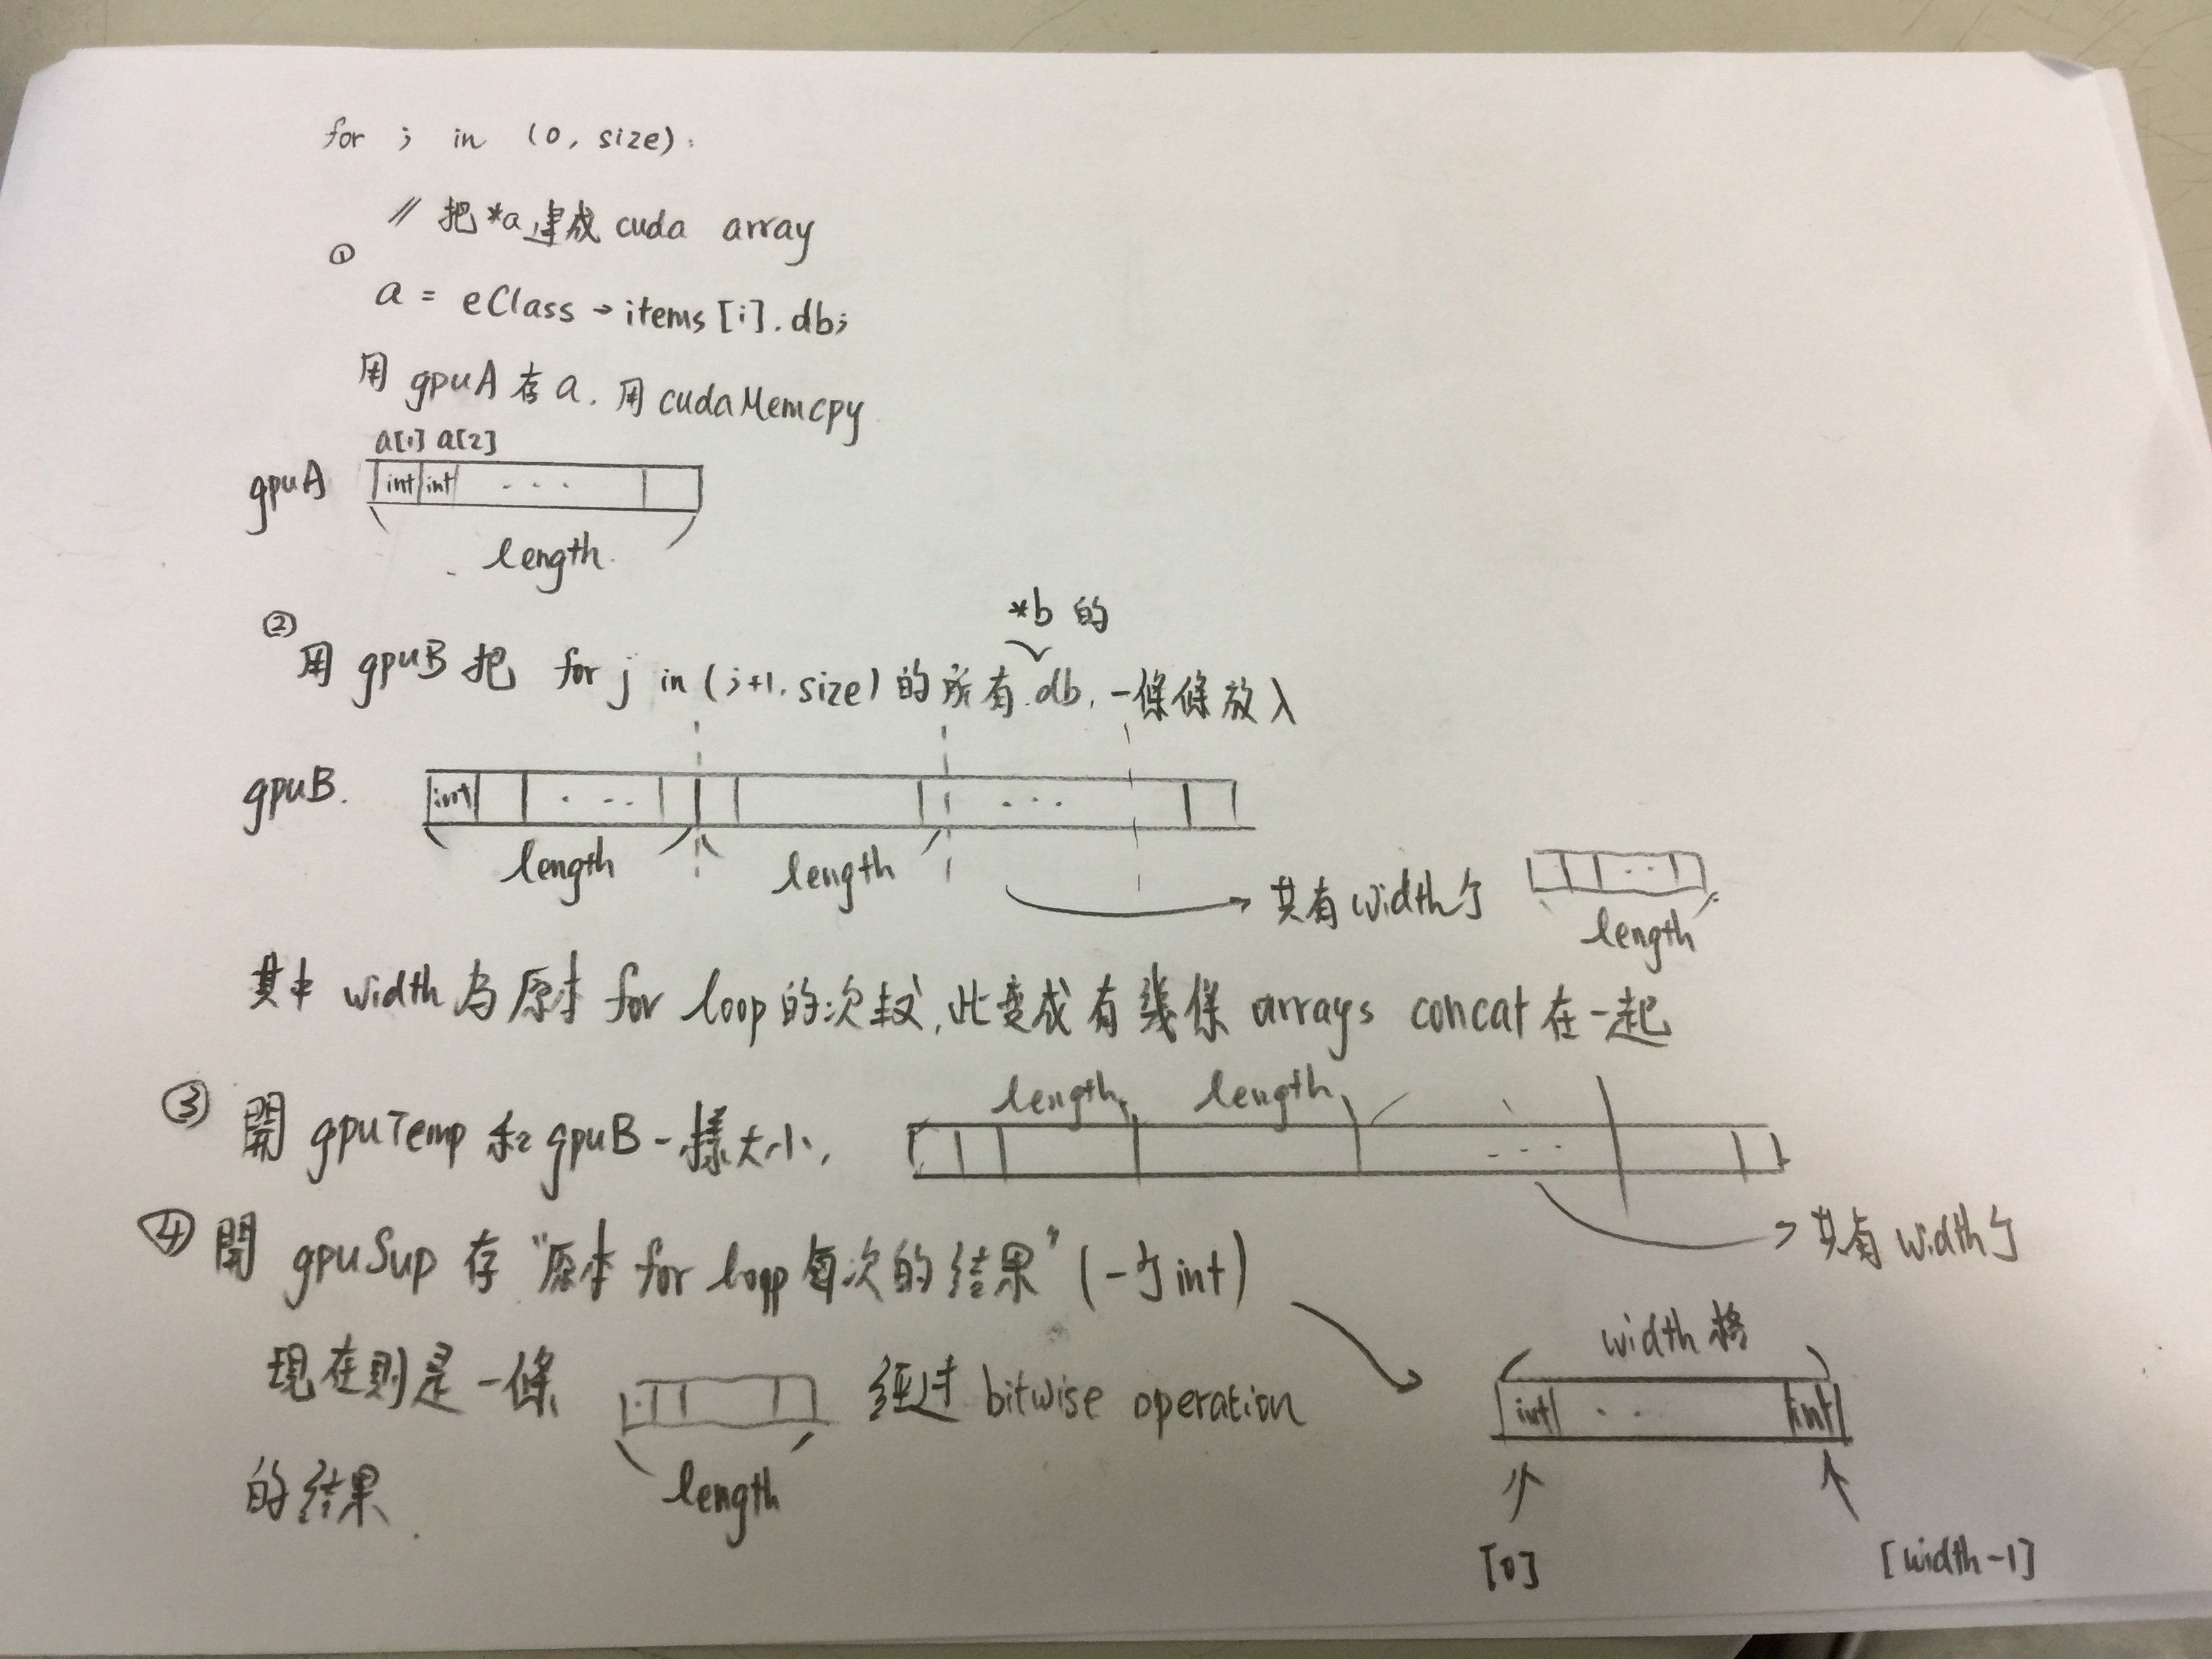 for i in (0, size):
// 把*a建成 cuda array
①
a = eClass → items[i].db;
用 gpuA 存 a. 用 cudaMemcpy
a[1] a[2]
gpuA int int ...
length
*b 的
②
用 gpuB 把 for j in (i+1, size) 的所有 db, 一條條放入
gpuB. int ...
length length
共有 width 个
length
其中 width 为 原本 for loop 的次数, 此变成 有幾條 arrays concat 在一起
length length
③ 開 gpuTemp 和 gpuB 一樣大小, ...
共有 width 个
④ 開 gpuSup 存 "原本 for loop 每次的结果" (一个 int)
width 格
現在則是一條 经过 bitwise operation
int .. int
length
的结果.
[0] [width-1]